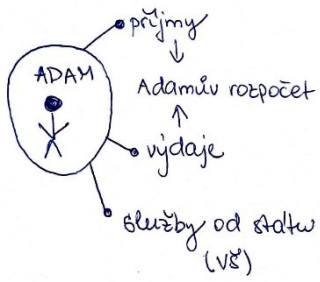 příjmy
ADAM
Adamův rozpočet
výdaje
služby od státu
(VŠ)